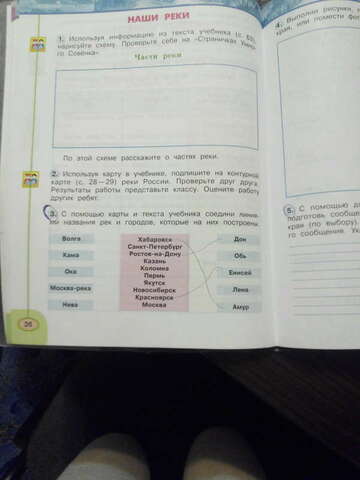 НАШИ РЕКИ
1. Используя информацию из текста учебника (с. 69),
нарисуйте схему. Проверьте себя на «Страничках Умно-
го Совёнка».
Части реки
По этой схеме расскажите о частях реки.
2. Используя карту в учебнике, подпишите на контурной
карте (с. 28—29) реки России. Проверьте друг друга.
Результаты работы представьте классу. Оцените работу
других ребят.
3. С помощью карты и текста учебника соедини линия-
ми названия рек и городов, которые на них построены.
Волга
Кама
Ока
Москва-река
Нева
Хабаровск
Санкт-Петербург
Ростов-на-Дону
Казань
Коломна
Пермь
Якутск
Новосибирск
Красноярск
Москва
Дон
Обь
Енисей
Лена
Амур
36
4. Выполни рисунки,
края, или помести фо
5. С помощью д
подготовь сообще
края (по выбору).
го сообщения. Ук